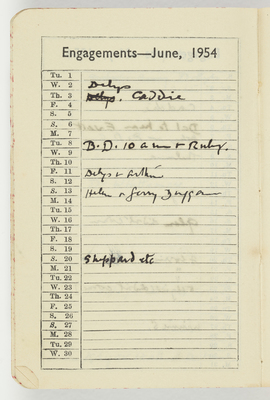 Engagements—June, 1954
Tu. 1
W. 2 Delys
Th. 3 Delys. Caddie
F. 4
S. 5
S. 6
M. 7
Tu. 8 B.D. 10 am + Ruby.
W. 9
Th. 10
F. 11 Delys + Arthur
S. 12
S. 13 Helen + Gerry
M. 14
Tu. 15
W. 16
Th. 17
F. 18
S. 19
S. 20 Sheppard etc
M. 21
Tu. 22
W. 23
Th. 24
F. 25
S. 26
S. 27
M. 28
Tu. 29
W. 30